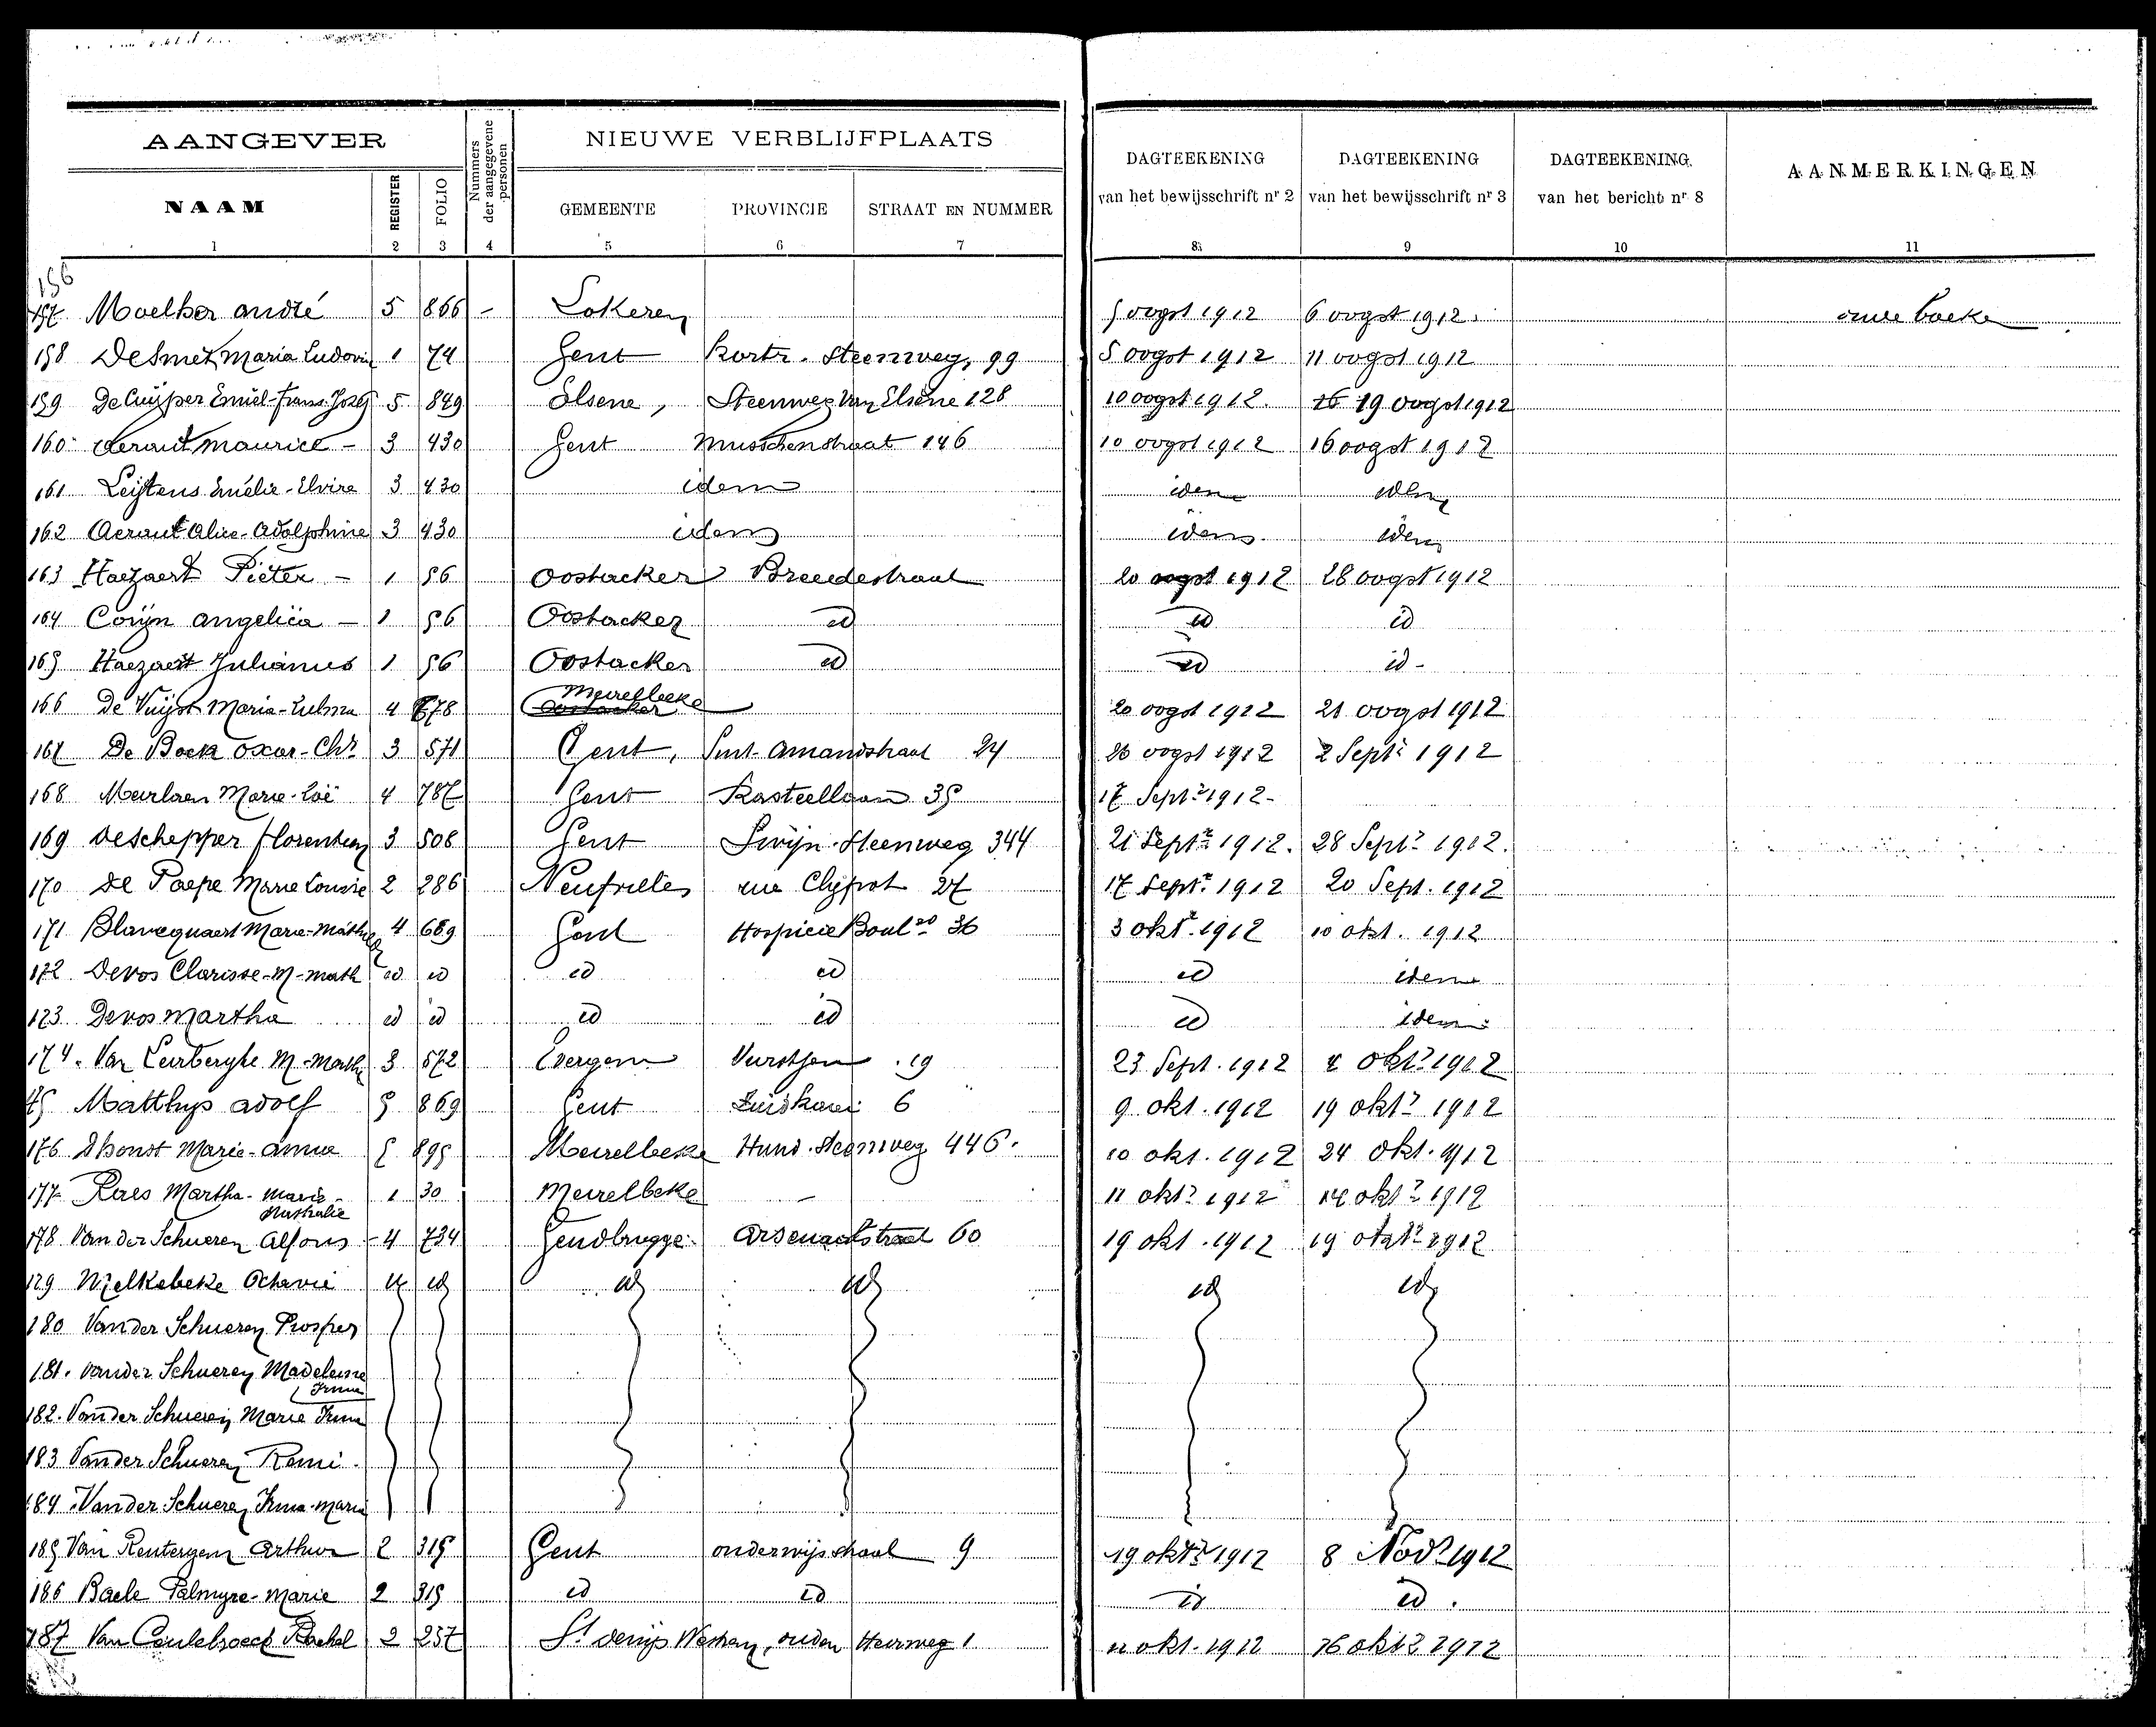 AANGEVER
Nummers der aangegevene personen
NIEUWE VERBLIJFPLAATS
DAGTEEKENING van het bewijsschrift nr 2
DAGTEEKENING van het bewijsschrift nr 3
DAGTEEKENING van het bericht nr 8
AANMERKINGEN
NAAM REGISTER FOLIO GEMEENTE PROVINCIE STRAAT EN NUMMER
1 2 3 4 5 6 7 8 9 10 11
156
157 Moelker André 5 866 - Lokeren 5 oogst 1912 6 oogst 1912
158 De Smet Maria Ludovi 1 74 Gent Kortr. Steenweg, 99 5 oogst 1912 11 oogst 1912
159 De Cuyper Emiel-Frans-Jozef 5 849 Elsene, Steenweg van Elsene 128 10 oogst 1912. 19 oogst 1912
160 Aeraut Maurice - 3 430 Gent Musschenstraat 146 10 oogst 1912 16 oogst 1912
161 Leijtens Emélie-Elvire 3 430 idem idem idem
162 Aeraut Alice-Adolphine 3 430 idem idem idem
163 Haezaert Pieter - 1 56 Oostacker Breedestraat 20 oogst 1912 28 oogst 1912
164 Corijn Angelica - 1 56 Oostacker id id id
165 Haezaert Julianus 1 56 Oostacker id id id -
166 De Vuijst Maria-Zulma 4 678 Meirelbeke 20 oogst 1912 21 oogst 1912
167 De Bock Oscar-Chr 3 571 Gent, Sint-Amandstraat 24 26 oogst 1912 2 Septr 1912
168 Meirlaen Marie-Zoë 4 787 Gent Kasteellaan 35 17 Septr 1912-
169 Deschepper Florentien 3 508 Gent Swijn-Steenweg 344 21 Septr 1912. 28 Septr 1912.
170 De Paepe Marie Louise 2 286 Neufvilles rue Clypot 27 17 Septr 1912 20 Sept. 1912
171 Blancquaert Marie-Mathilda 4 669 Gent Hospice Boul 36 3 oktr 1912 10 okt. 1912
172 Devos Clarisse-M-Math id id id id id idem
173 Devos Martha id id id id id idem
174. Van Leirberghe M-Marth 3 572 Evergem Vurstjen 19 23 Sept. 1912 4 oktr 1912
175 Matthys Adolf 5 869 Gent Zuidkaai 6 9 okt. 1912 19 oktr 1912
176 D'hondt Marie-Anna 5 895 Meirelbeke Hund. Steenweg 446. 10 okt. 1912 24 okt. 1912
177 Raes Martha-Marie-Nathalie 1 30 Meirelbeke - 11 oktr 1912 14 oktr 1912
178 Van der Schueren Alfons - 4 734 Gendbrugge Arsenaalstraat 60 19 okt. 1912 19 oktr 1912
179 Melkebeke Octavie id id id id id id
180 Van der Schueren Prosper
181. Van der Schueren Madeleine Irma
182. Van der Schueren Marie Irma
183 Van der Schueren Remi
184 Van der Schueren Irma-Maria
185 Van Rentergem Arthur 2 315 Gent onderwijsstraat 9 19 oktr 1912 8 Novr 1912
186 Baele Palmyre-Marie 2 315 id id id id.
187 Van Ceulebroeck Rachel 2 257 St denijs Westrem, ouden Heirweg 1 11 okt. 1912 16 oktr 1912